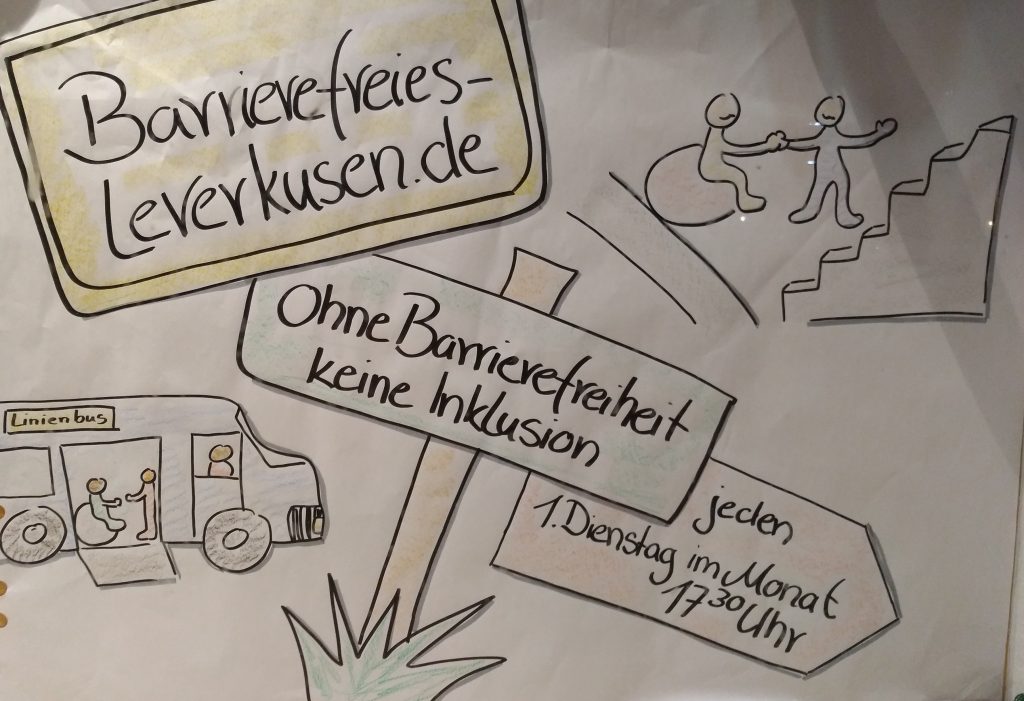 Barrierefreies-
Leverkusen.de
Ohne Barrierefreiheit
keine Inklusion
Linienbus
jeden
1. Dienstag im Monat
17³⁰ Uhr